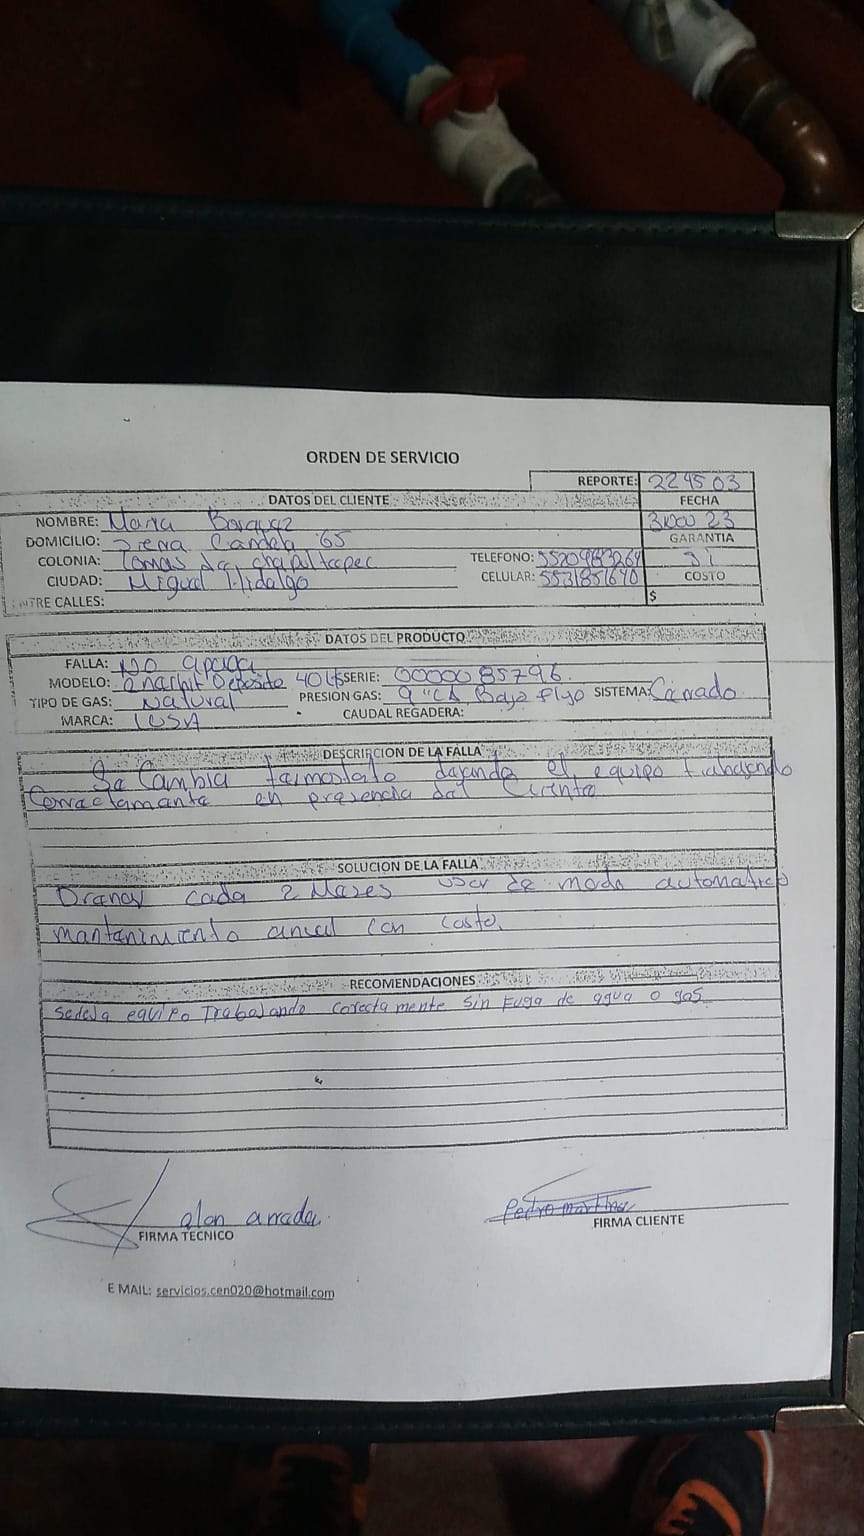 ORDEN DE SERVICIO
REPORTE: 224503
DATOS DEL CLIENTE FECHA
NOMBRE: Maria
DOMICILIO: Sierra Candela 65 GARANTIA
COLONIA: Lomas de chapultepec TELEFONO: Si
CIUDAD: Migual Hidalgo CELULAR: COSTO
ENTRE CALLES: $
DATOS DEL PRODUCTO
FALLA: No apaga
MODELO: Deposito SERIE: 0000085796
TIPO DE GAS: Natural PRESION GAS: 9 "CA Bajo flujo SISTEMA: Cerrado
MARCA: IUSA CAUDAL REGADERA:
DESCRIPCION DE LA FALLA
Se Cambia termostato dejando el equipo trabajando
Correctamente en presencia del Cliente
SOLUCION DE LA FALLA
Drenar cada 2 Meses usar de modo automatico
mantenimiento anual con costo.
RECOMENDACIONES
sedeja equipo Trabajando corectamente sin Fuga de agua o gas
alan
FIRMA TECNICO
Pedro martinez
FIRMA CLIENTE
E MAIL: servicios.cen020@hotmail.com